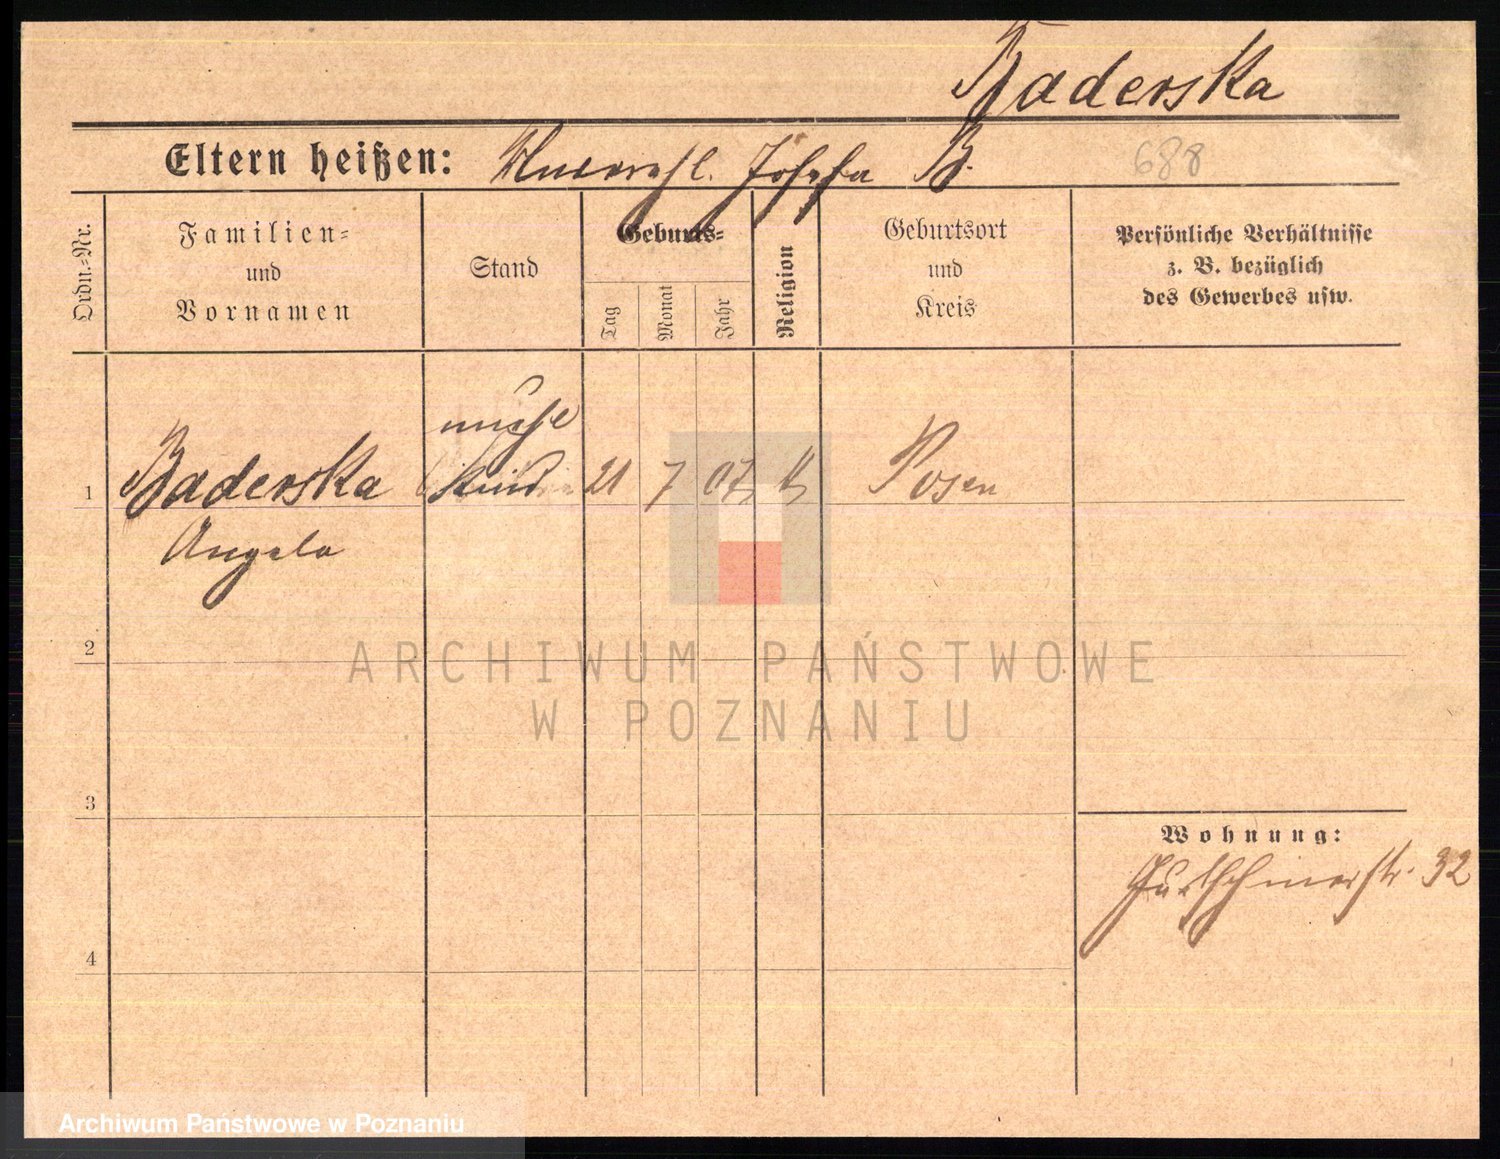 Baderska
Eltern heißen: Unverehl. Josefa B.
688
Ordn.-Nr.
Familien-
und
Vornamen
Stand
Geburts-
Tag
Monat
Jahr
Religion
Geburtsort
und
Kreis
Persönliche Verhältnisse
z. B. bezüglich
des Gewerbes usw.
unehl
1 Baderska Kind 21 7 07 k Posen
Angela
2
ARCHIWUM PAŃSTWOWE
W POZNANIU
3
Wohnung:
32
4
Archiwum Państwowe w Poznaniu